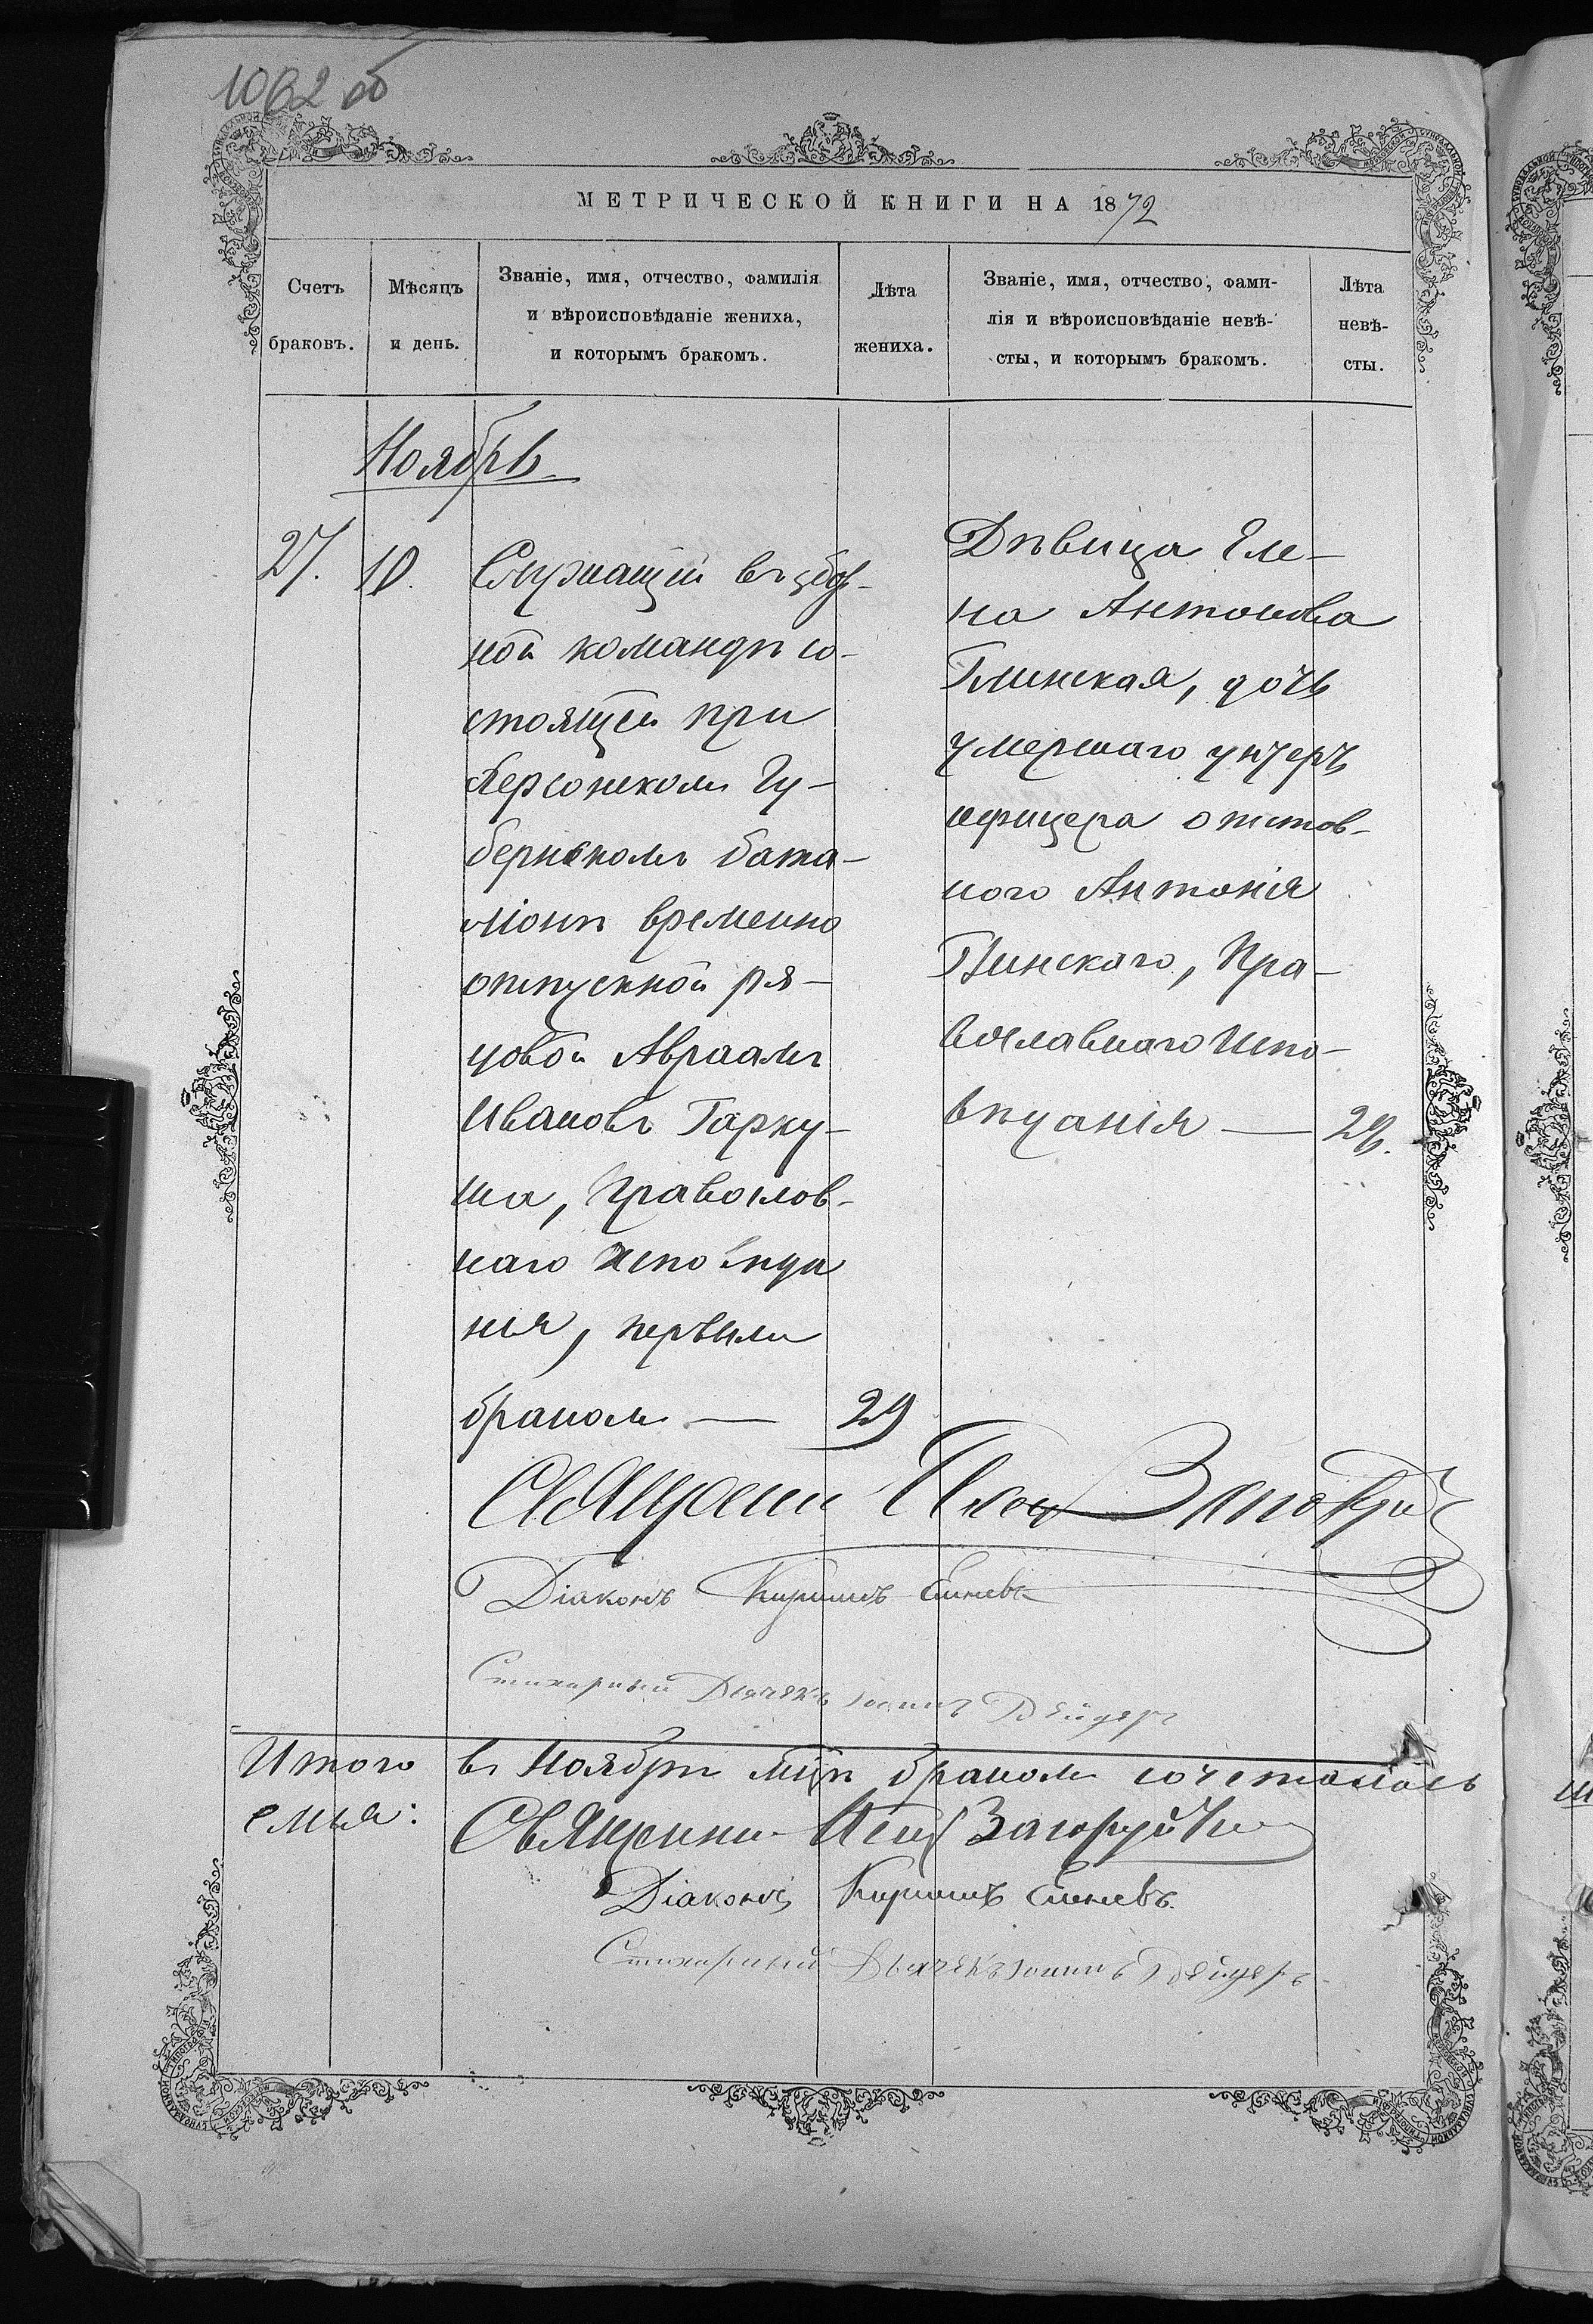 1062 об
МЕТРИЧЕСКОЙ КНИГИ НА 1872
Счетъ браковъ.
Мѣсяцъ и день.
Званіе, имя, отчество, фамилія
и вѣроисповѣданіе жениха,
и которымъ бракомъ.
Лѣта жениха.
Званіе, имя, отчество, фами-
лія и вѣроисповѣданіе невѣ-
сты, и которымъ бракомъ.
Лѣта невѣ-
сты.
Ноябрь
27. 10.
Служащій въ
ной командѣ со-
стоящей при
Херсонскомъ Гу-
бернскомъ бата-
ліонѣ временно
отпускной ря-
довой Авраамъ
Ивановъ Гарку-
ша, Православ-
наго исповѣда
нія, первымъ
бракомъ — 29
Дѣвица Еле-
на Антонова
Глинская, дочь
умершаго унтеръ
офицера отстав-
ного Антонія
Глинскаго, Пра-
вославнаго Испо-
вѣданія —
Діаконъ Кириллъ
Стихарный Дьячекъ Іоаннъ
Итого въ Ноябрѣ мцѣ бракомъ сочеталось
емья:
Діаконъ Кириллъ
Стихарный Дьячекъ Іоаннъ